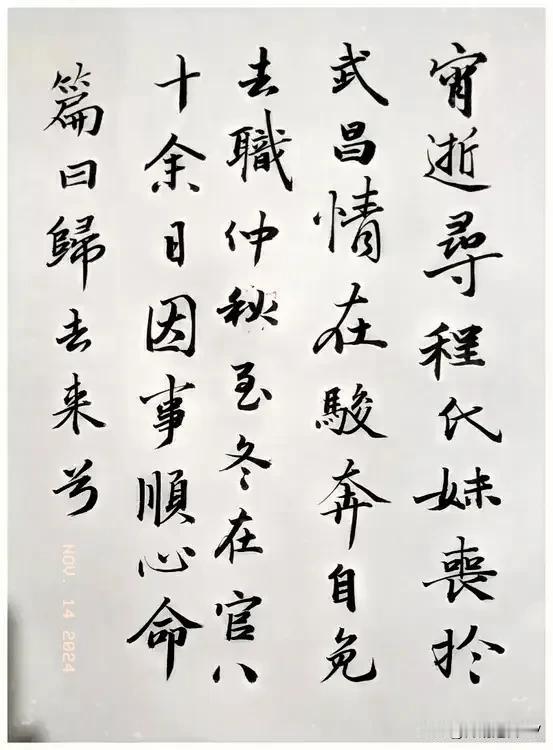 宵逝尋程氏妹喪於
武昌情在駿奔自免
去職仲秋至冬在官八
十余日因事順心命
篇曰歸去来兮
NOV. 14 2024